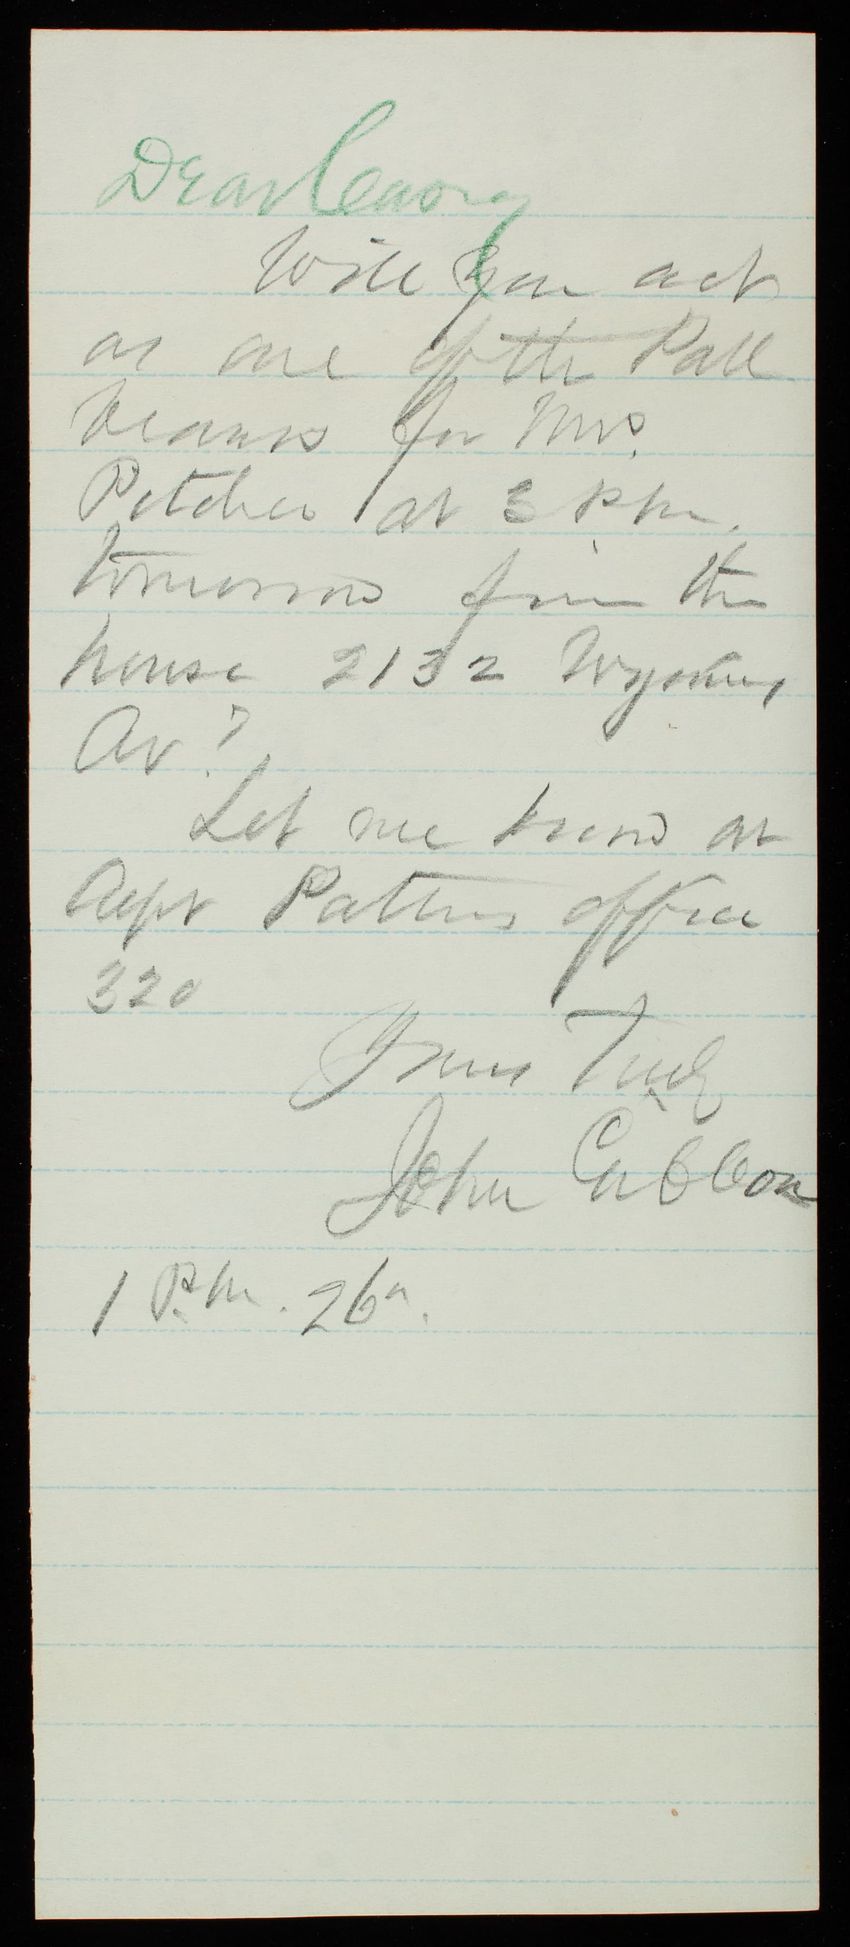 Dear Casey
Will you act
as one of the Pall
bearers for Mrs.
Pitcher at 3 P.m.
tomorrow from the
house 2132 Wyoming
Av?
Let me know at
Capt Pattens office
320
Yours Truly
John Gibbon
1 P.m. 26"